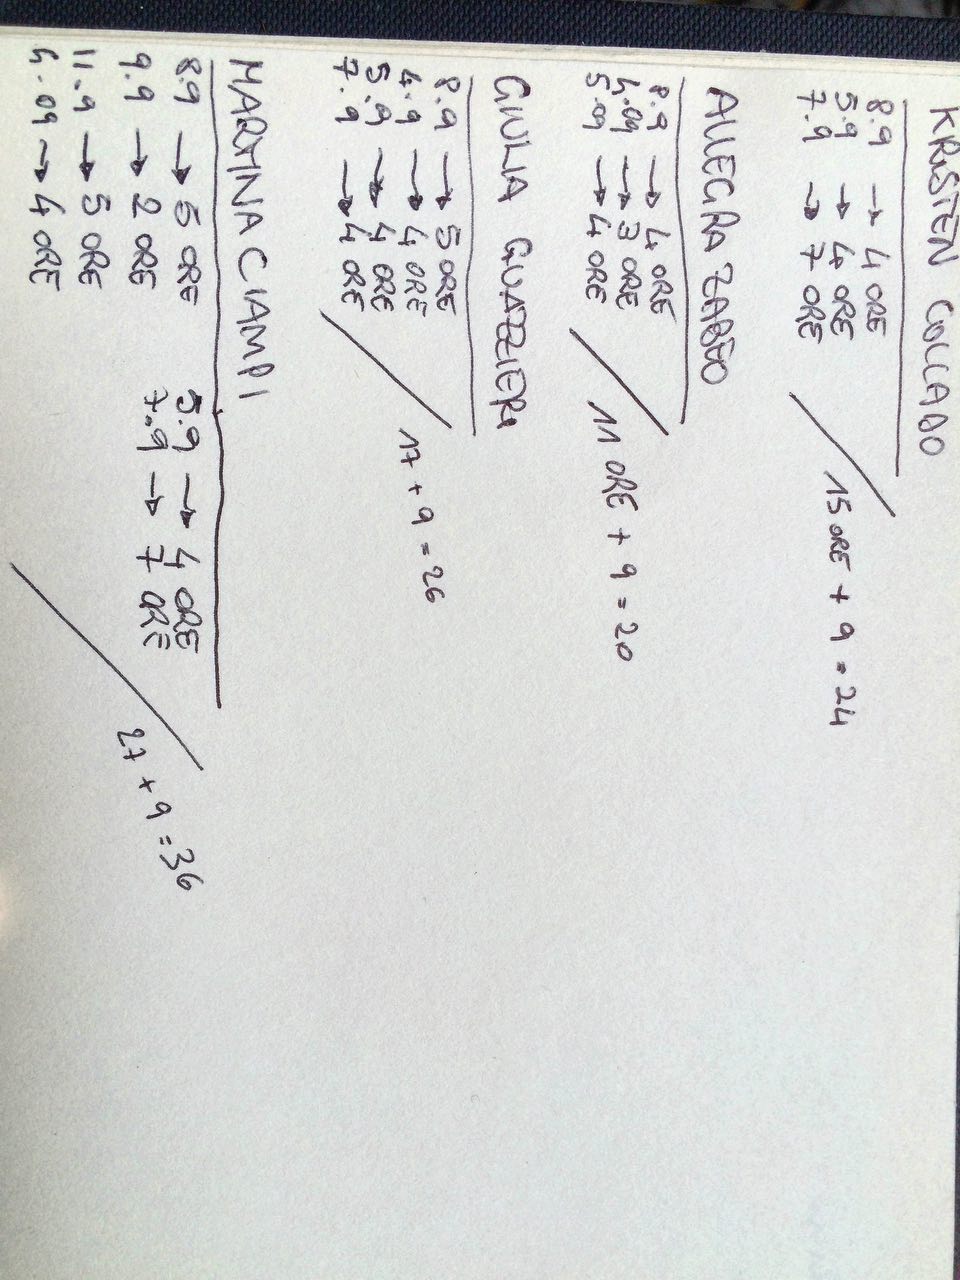 KRISTEN COLLADO
8.9 → 4 ORE
5.9 → 4 ORE
7.9 → 7 ORE
15 ORE + 9 = 24
ALLEGRA ZABEO
8.9 → 4 ORE
4.09 → 3 ORE
5.09 → 4 ORE
11 ORE + 9 = 20
GIULIA GUAZZIERI
8.9 → 5 ORE
4.9 → 4 ORE
5.9 → 4 ORE
7.9 → 4 ORE
17 + 9 = 26
MARTINA CIAMPI
8.9 → 5 ORE
9.9 → 2 ORE
11.9 → 5 ORE
4.09 → 4 ORE
5.9 → 4 ORE
7.9 → 7 ORE
27 + 9 = 36